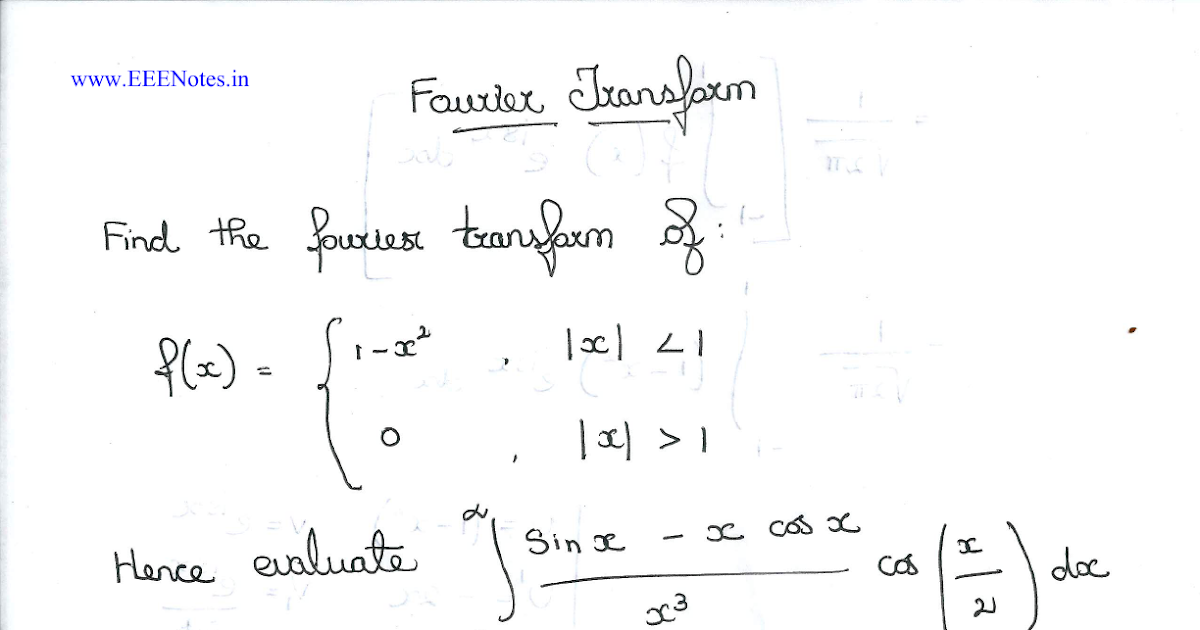 www.EEENotes.in
Fourier Transform
Find the fourier transform of:
f(x) = { 1-x² , |x| < 1
0 , |x| > 1
Hence evaluate ∫^∞ (sin x - x cos x)/x³ cos(x/2) dx